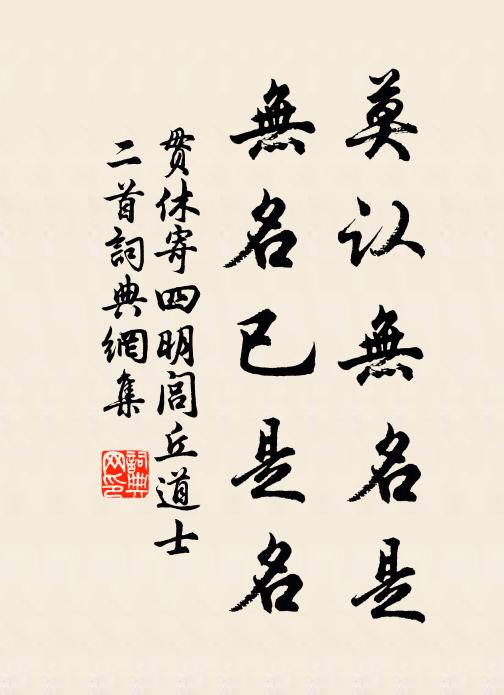 莫认無名是
無名已是名
贯休寄四明闾丘道士
二首詞典網集
詞典
网印